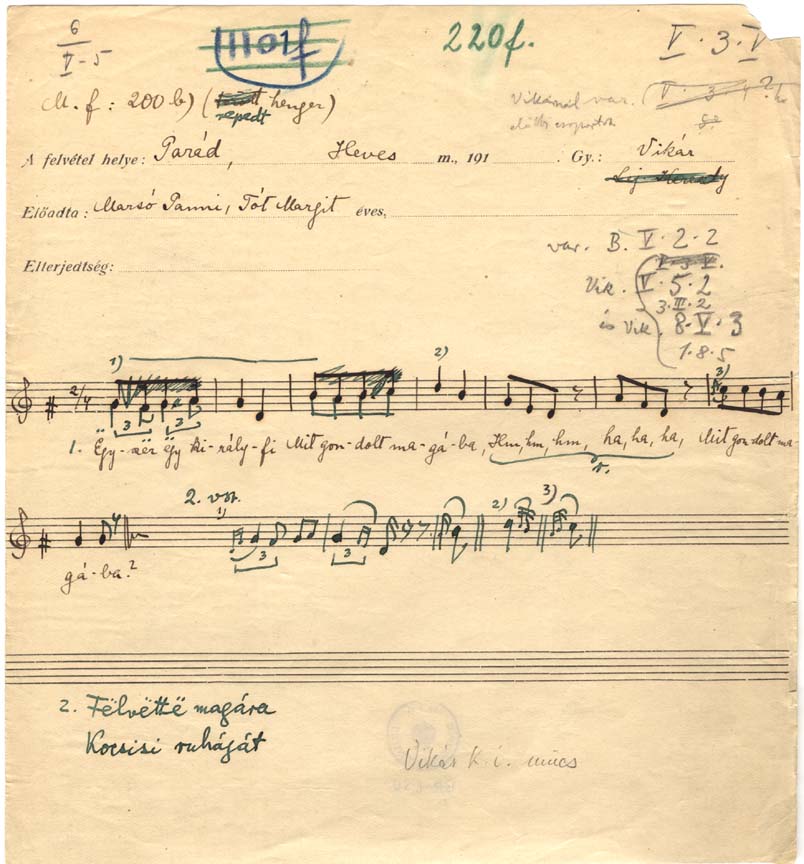 6 1101f 220f. V·3·V
V-5
M. f: 200 b) (henger)
repedt
Vikárnál var. (V · 3
A felvétel helye: Parád, Heves m., 191 Gy.: Vikár
Előadta: Marsó Panni, Tót Margit éves,
var. B. V·2·2
Elterjedtség: 1·3·V.
Vik. V·5·2
3·III·2
és Vik. 8·V·3
1·8·5
1) 2) 3)
2/4
3 3
1. Ëgy-szër ëgy ki-rály-fi Mit gon-dolt ma-gá-ba, Hm, hm, hm, ha, ha, ha, Mit gon-dolt ma-
r.
2. vsz. 1) 2) 3)
3 3
gá-ba?
2. Fëlvëttë magára
Kocsisi ruháját
Vikár k. i. nincs